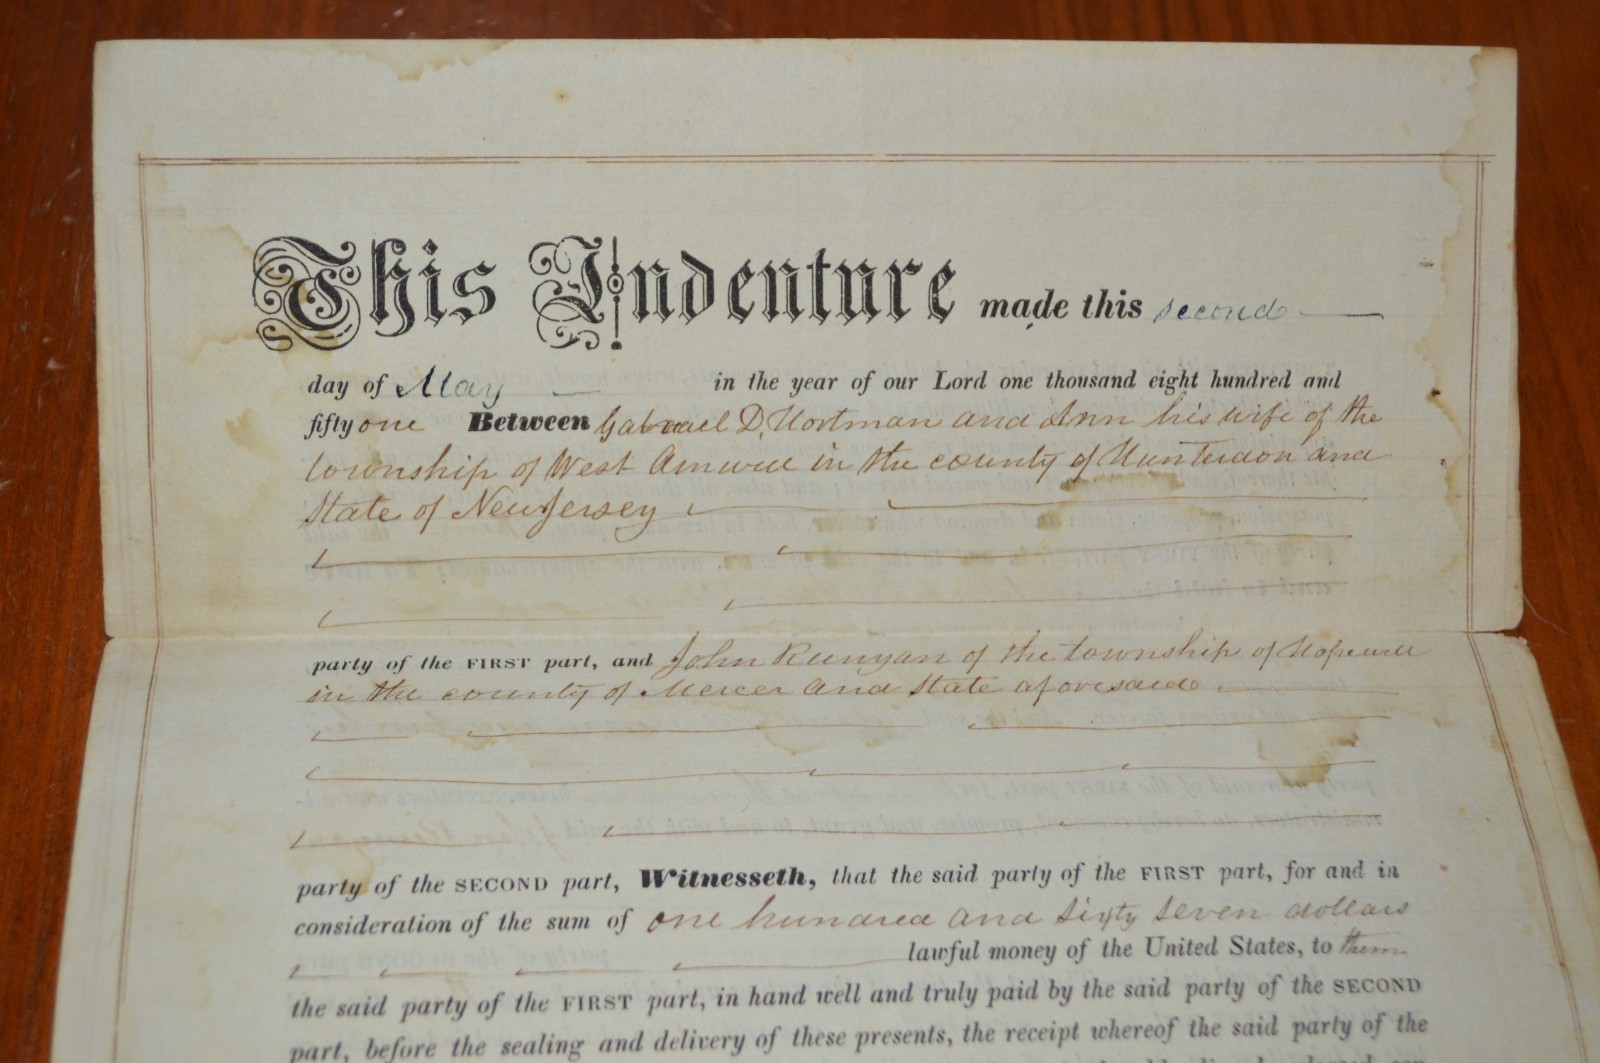 This Indenture made this second
day of May in the year of our Lord one thousand eight hundred and
fifty one Between Gabrael D. Hortman and Ann his wife of the
township of West Amwell in the county of Hunterdon and
State of New Jersey
party of the FIRST part, and John Runyan of the township of Hopewell
in the county of Mercer and State aforesaid.
party of the SECOND part, Witnesseth, that the said party of the FIRST part, for and in
consideration of the sum of one hundred and sixty seven dollars
lawful money of the United States, to them
the said party of the FIRST part, in hand well and truly paid by the said party of the SECOND
part, before the sealing and delivery of these presents, the receipt whereof the said party of the